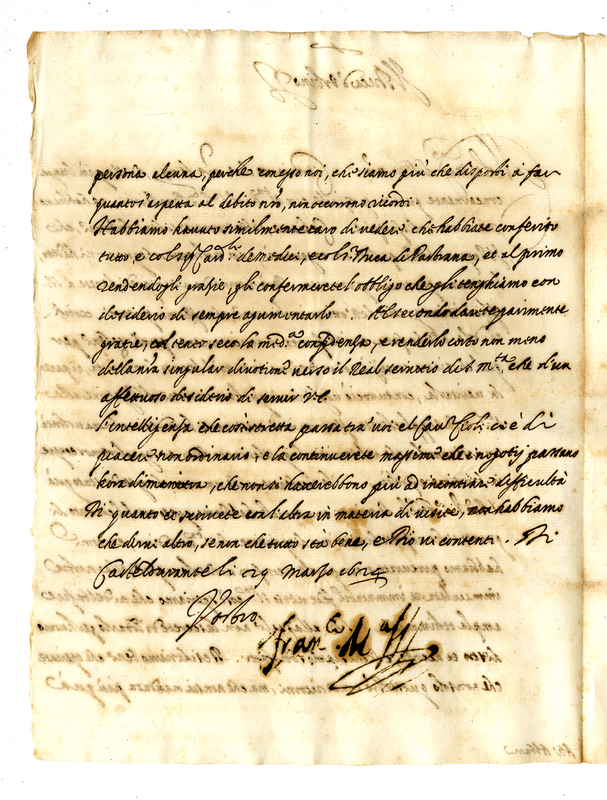 persona alcuna, perche con esso noi, che siamo più che disposti à far
quanto s'aspetta al debito nro, non occorrono ricordi.
Habbiamo havuto similmente caro di vedere che habbiate conferito
tutto e col Sigr Cardle de Medici, e col Sr Duca de Pastrana, et al primo
rendendogli grazie, gli confermerete l'obbligo che gli tenghiamo con
desiderio di sempre agumentarlo. Al secondo darete parimente
grazie, col tener seco la medma confidenza, e renderlo certo non meno
della nra singular divotione verso il Real servitio di S. Mtà che d'un
affettuoso desiderio di servir
L'intelligenza che così stretta passa trà voi et il Cavr Cioli ci è di
piacere non ordinario, e la continuerete massime che i negotij passano
hora di maniera, che non si haverebbono più ad incontrar difficultà
Di quanto ci scrivete con l'altra in materia di visite, non habbiamo
che dirvi altro, se non che tutto stà bene, e Dio vi contenti. Di
Casteldurante li 29 Marzo
Vostro
Franco Ma